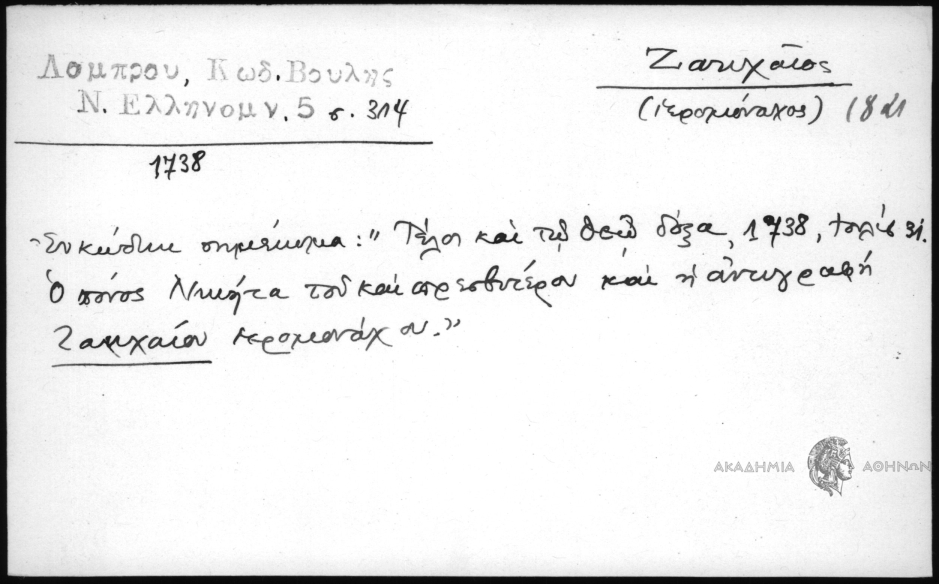 Λαμπρου, Κωδ. Βουλης
Ν. Ελληνομν. 5 σ. 314
1738
Ζακχαῖος
(ἱερομόναχος)
σημείωμα: "Τέλος καὶ τῷ θεῷ δόξα, 1738, 31.
Ὁ πόνος Νικήτα τοῦ καὶ πρεσβυτέρου καὶ ἡ ἀντιγραφὴ
Ζακχαίου ἱερομονάχου."
ΑΚΑΔΗΜΙΑ ΑΘΗΝΩΝ